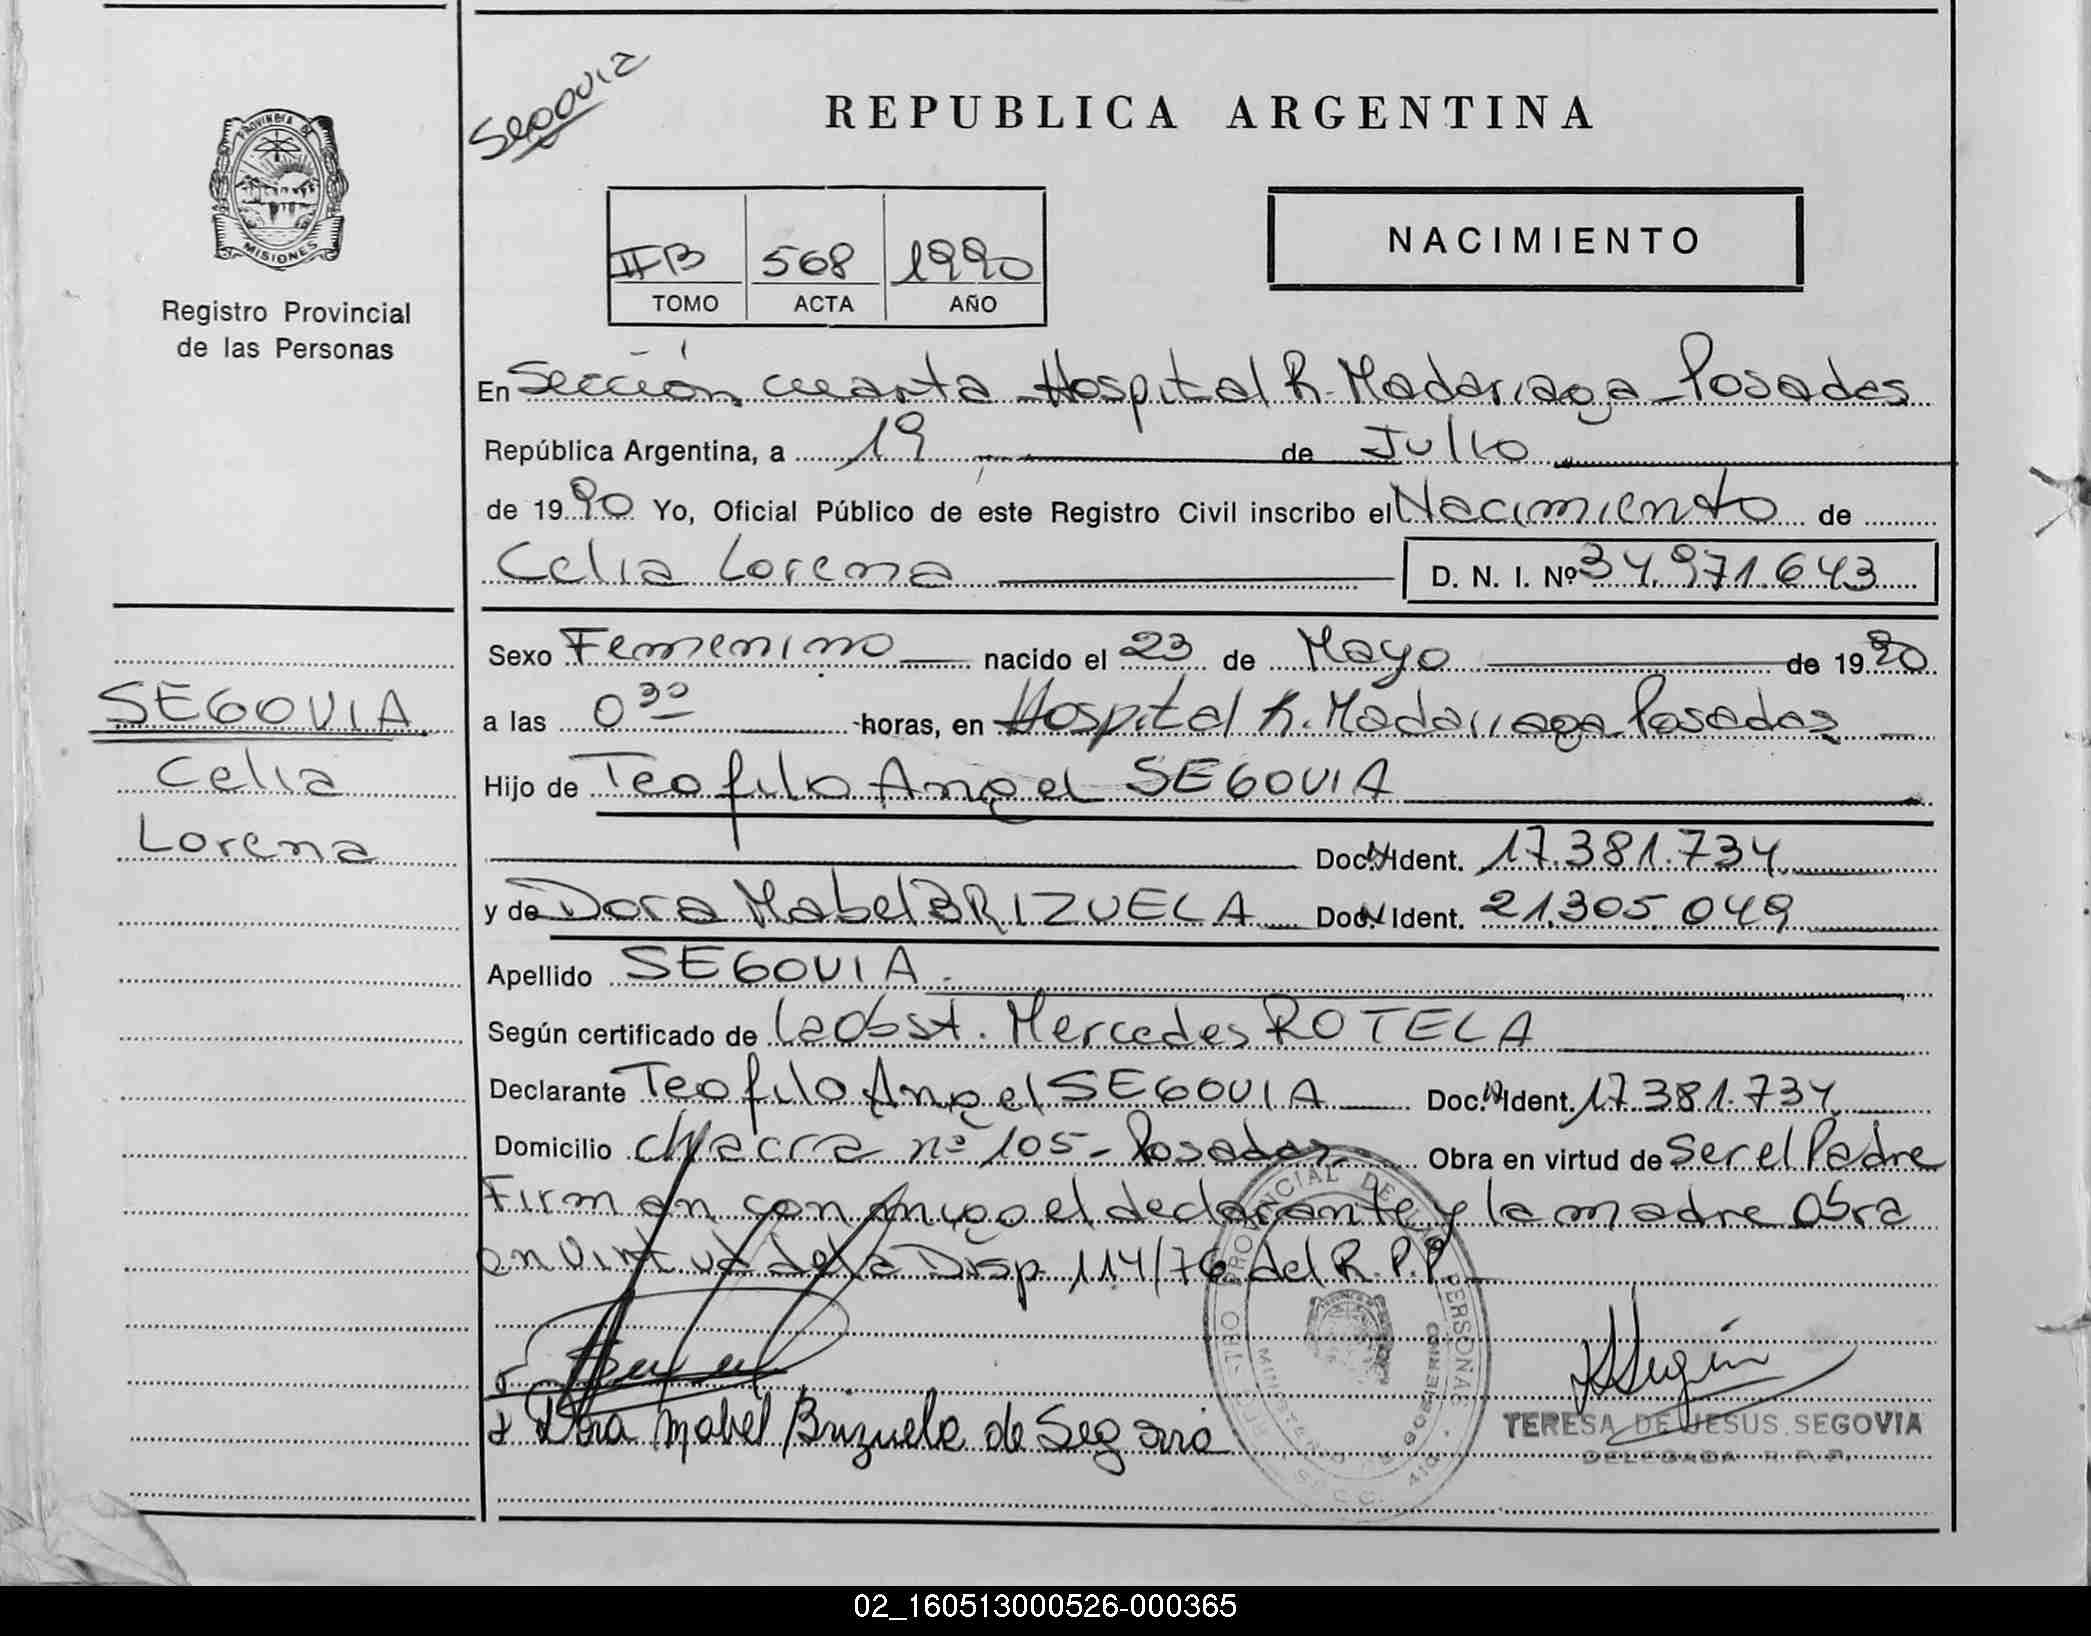 Segovia
REPUBLICA ARGENTINA
PROVINCIA DE
MISIONES
Registro Provincial
de las Personas
IIB 568 1990
TOMO ACTA AÑO
NACIMIENTO
En Sección cuarta Hospital R. Madariaga - Posadas
República Argentina, a 19 de Julio
de 1990 Yo, Oficial Público de este Registro Civil inscribo el Nacimiento de
Celia Lorena D. N. I. Nº 34.971.643
Sexo Femenino nacido el 23 de Mayo de 1990
a las 0 30 horas, en Hospital R. Madariaga Posadas
Hijo de Teofilo Angel SEGOVIA
Doc. N Ident. 17.381.734
y de Dora Mabel BRIZUELA Doc. N Ident. 21.305.049
Apellido SEGOVIA.
Según certificado de la Obst. Mercedes ROTELA
Declarante Teofilo Angel SEGOVIA Doc. N Ident. 17.381.734
Domicilio Chacra nº 105 - Posadas Obra en virtud de Ser el Padre
Firman conmigo el declarante y la madre Obra
en Virtud de la Disp. 114/76 del R.P.P.
SEGOVIA
Celia
Lorena
PROVINCIAL DE LAS PERSONAS
MINISTERIO DE GOBIERNO
Dora Mabel Brizuela de Segovia
TERESA DE JESUS SEGOVIA
DELEGADA R. P. P.
02_160513000526-000365